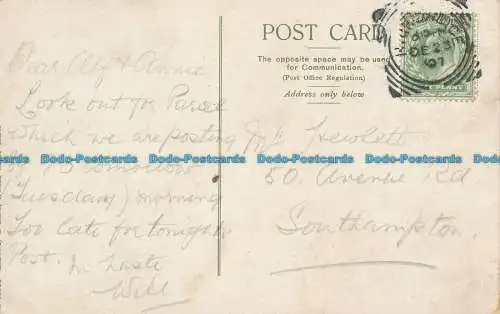 POST CARD
The opposite space may be used
for Communication.
(Post Office Regulation)
Address only below
DE 23
07
Dear Alf & Annie
Look out for Parcel
which we are posting
tomorrow
(Tuesday) morning
Too late for tonights
Post. In haste
Will
Hewlett
50. Avenue Rd
Southampton.
Dodo-Postcards Dodo-Postcards Dodo-Postcards Dodo-Postcards Dodo-Postcards